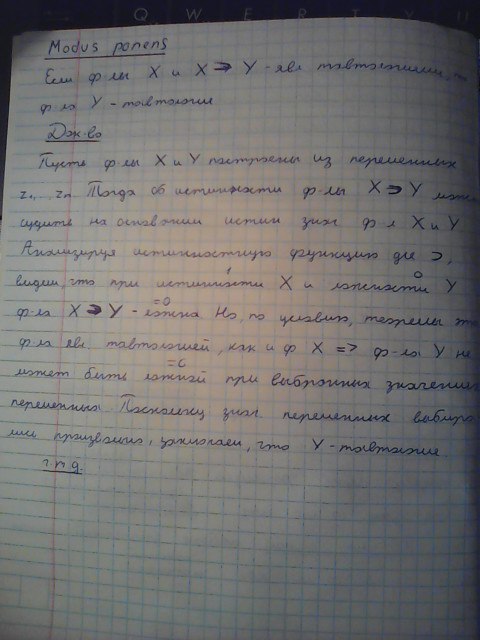 Q W E R T Y U
Modus ponens
Если ф-лы X и X ⊃ Y - явл тавтологиями, то
ф-ла Y - тавтология
Док-во
Пусть ф-лы X и Y построены из переменных
z₁, ..., zn Тогда об истинности ф-лы X ⊃ Y можн
судить на основании истин знач ф-л X и Y
Анализируя истинностную функцию для ⊃,
видим, что при истинности X и ложности Y
1 0
ф-ла X ⊃ Y - ложна Но, по условию, теоремы эта
=0
ф-ла явл. тавтологией, как и ф X => ф-ла Y не
может быть ложной при выбранных значениях
=0
переменных Поскольку знач переменных выбира
лись произвольно, заключаем, что Y - тавтология
ч.т.д.